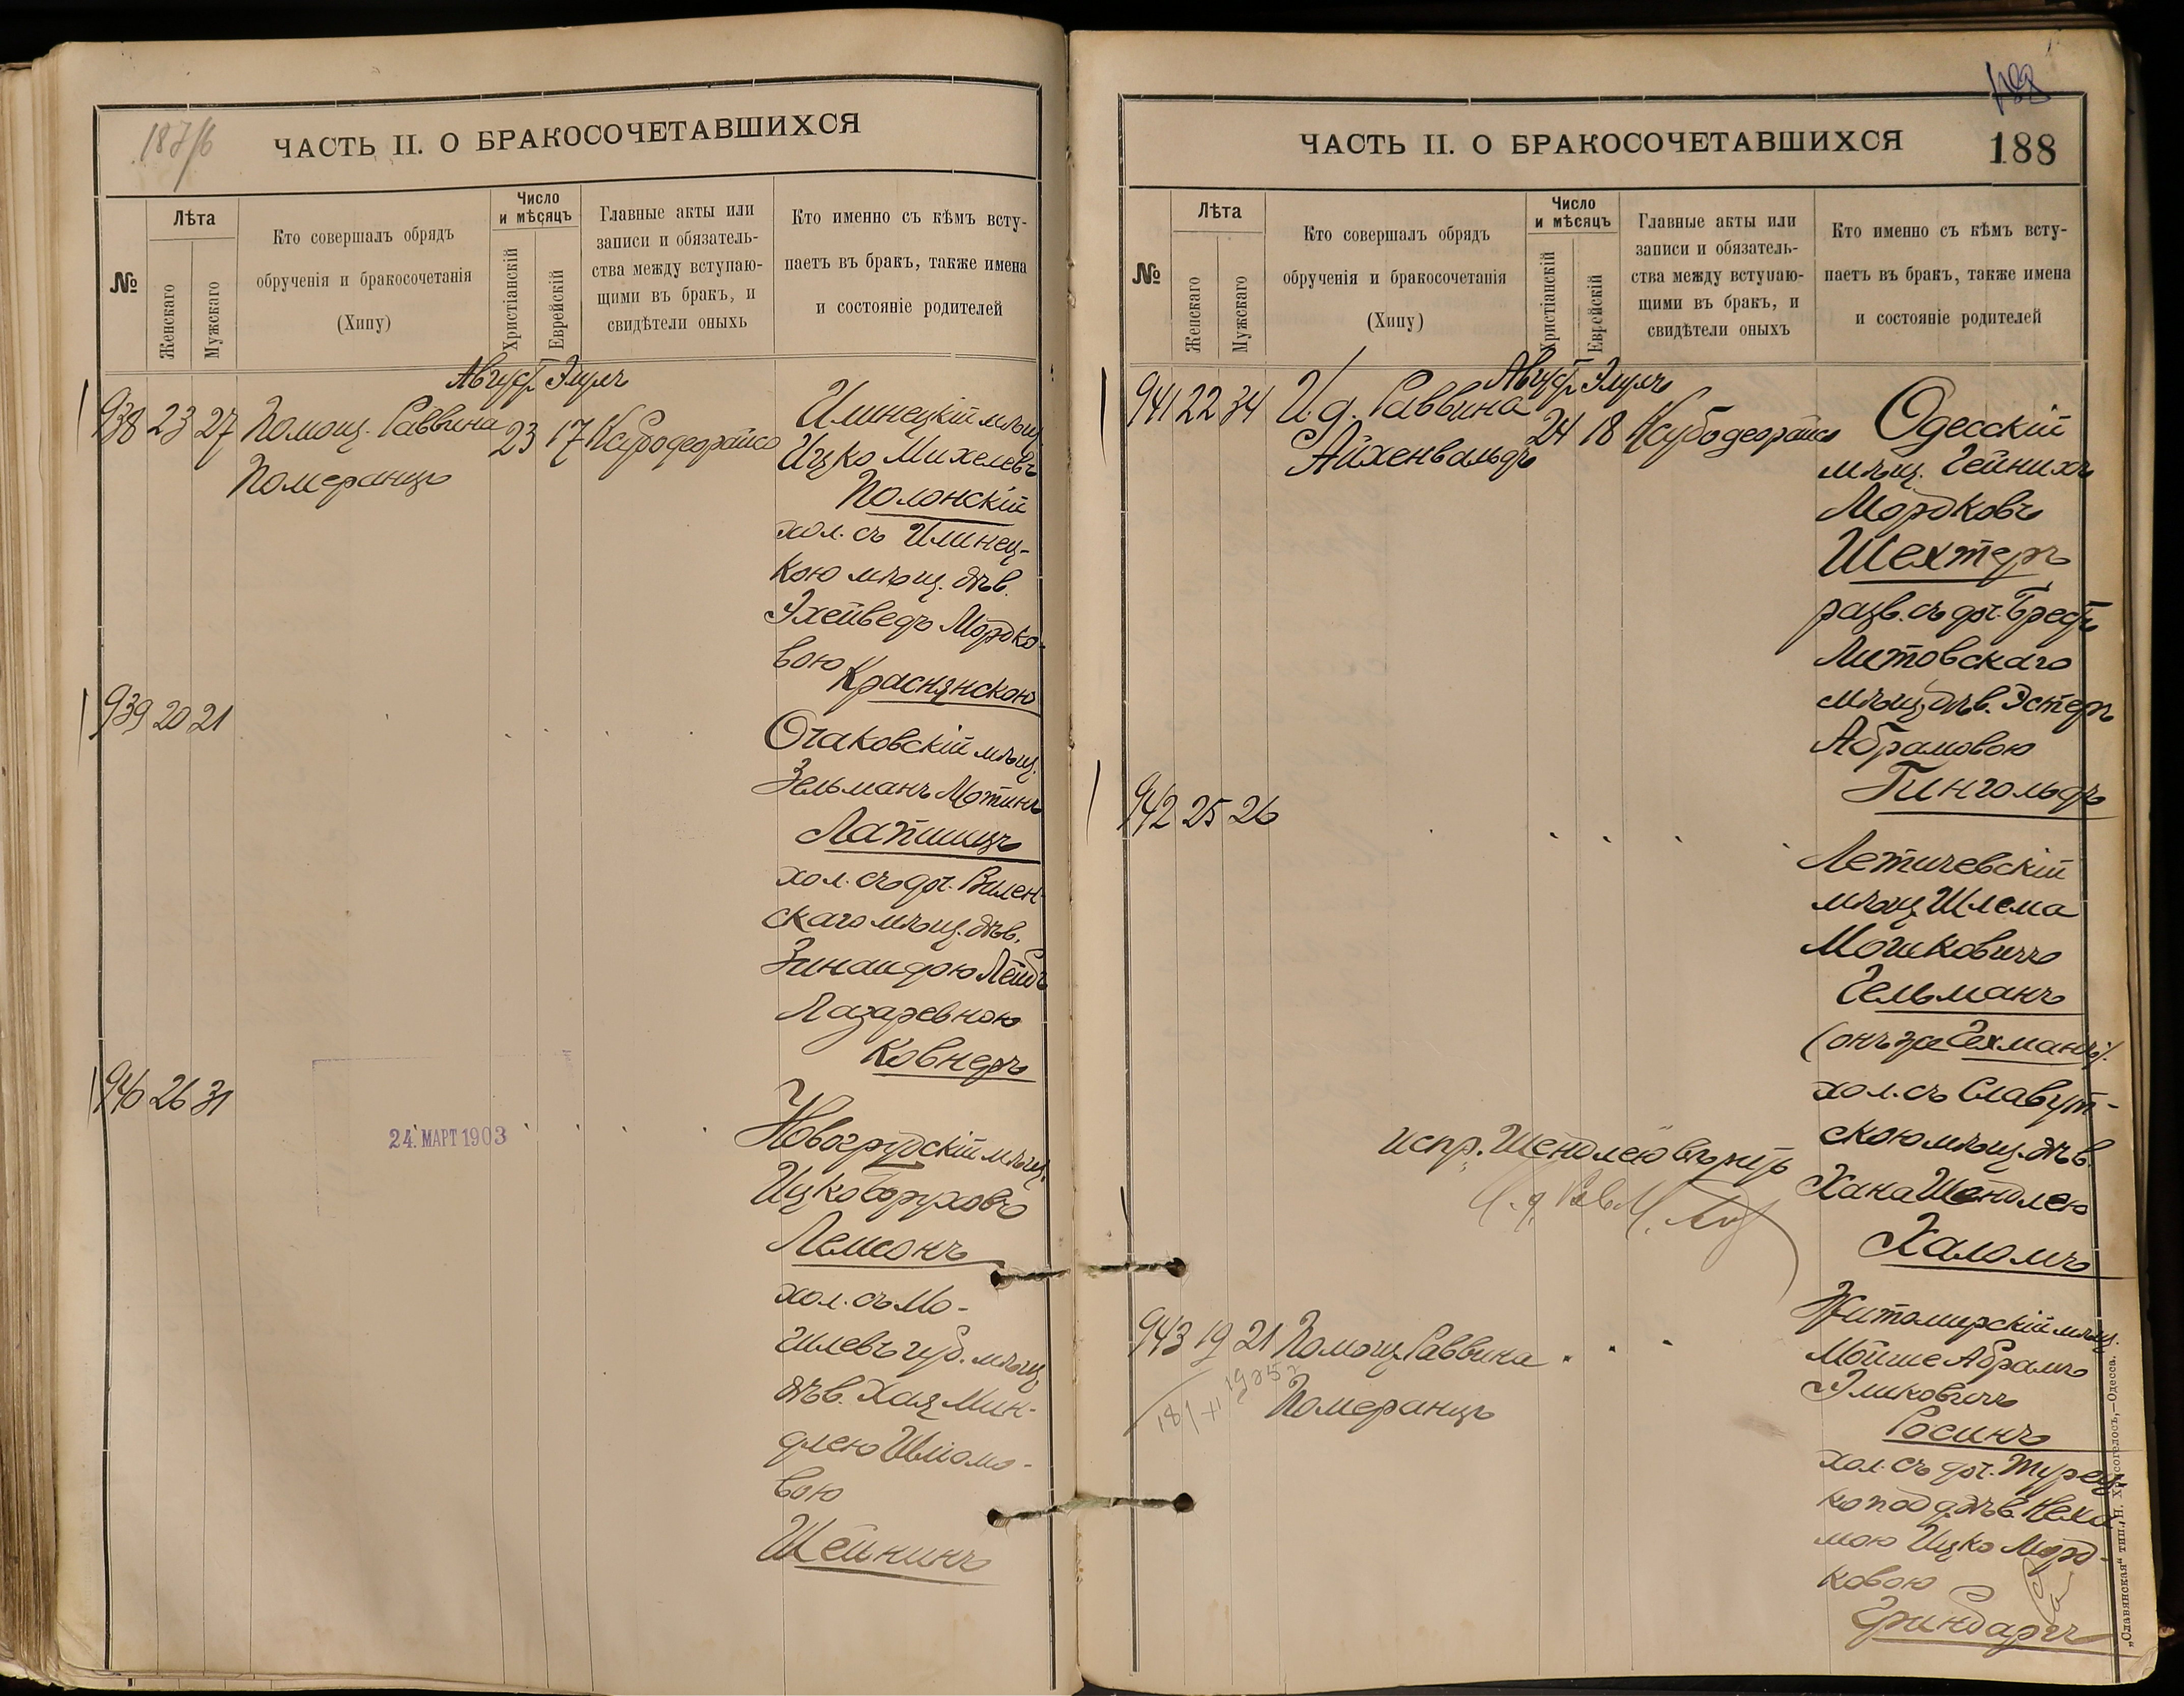 187/б
ЧАСТЬ II. О БРАКОСОЧЕТАВШИХСЯ
№
Лѣта
Женскаго
Мужскаго
Кто совершалъ обрядъ
обрученія и бракосочетанія
(Хипу)
Число
и мѣсяцъ
Христіанскій
Еврейскій
Главные акты или
записи и обязатель-
ства между вступаю-
щими въ бракъ, и
свидѣтели оныхъ
Кто именно съ кѣмъ всту-
паетъ въ бракъ, также имена
и состояніе родителей
Август. Элулъ
938 23 27 Помощ. Раввина 23 17 Ксубодеорайсо
Померанцъ
Илинецкій мѣщ.
Ицко Михелевъ
Полонскій
хол. съ Илинец-
кою мѣщ. дѣв.
Эхейведъ Мордко-
вою Краснянскою
939 20 21
Очаковскій мѣщ.
Зельманъ Мотинъ
Лапшицъ
хол. съ доч. Вилен-
скаго мѣщ. дѣв.
Зинаидою Лейбъ
Лазаревною
Ковнеръ
940 26 31
24. МАРТ 1903
Новогрудскій мѣщ.
Ицко Боруховъ
Лемсонъ
хол. съ Мо-
гилевъ губ. мѣщ.
дѣв. Хая Мин-
длею Шломо-
вою
Шейнинъ
188
ЧАСТЬ II. О БРАКОСОЧЕТАВШИХСЯ
188
№
Лѣта
Женскаго
Мужскаго
Кто совершалъ обрядъ
обрученія и бракосочетанія
(Хипу)
Число
и мѣсяцъ
Христіанскій
Еврейскій
Главные акты или
записи и обязатель-
ства между вступаю-
щими въ бракъ, и
свидѣтели оныхъ
Кто именно съ кѣмъ всту-
паетъ въ бракъ, также имена
и состояніе родителей
Август. Элулъ
941 22 34 И. д. Раввина 24 18 Ксубодеорайсо
Айхенвальдъ
Одесскій
мѣщ. Гейнихъ
Мордковъ
Шехтеръ
разв. съ доч. Брест.
Литовскаго
мѣщ. дѣв. Эстеръ
Абрамовою
Гингольдъ
942 25 26
Летичевскій
мѣщ. Шлема
Мошковичъ
Гельманъ
(онъ же Гехманъ).
хол. съ Славут-
скою мѣщ. дѣв.
Хана Шендлею
Халомъ
испр. "Шендлею" вѣрить
И. д. Рав.
943 19 21 Помощ. Раввина
Померанцъ
18/XI 1925
Житомирскій мѣщ.
Мойше Абрамъ
Эликовичъ
Росинъ
хол. съ доч. Турец-
ко подд. дѣв. Неха-
мою Ицко Морд-
ковою
Гринбаргъ
„Славянская" тип. Н. Хрисогелосъ,—Одесса.